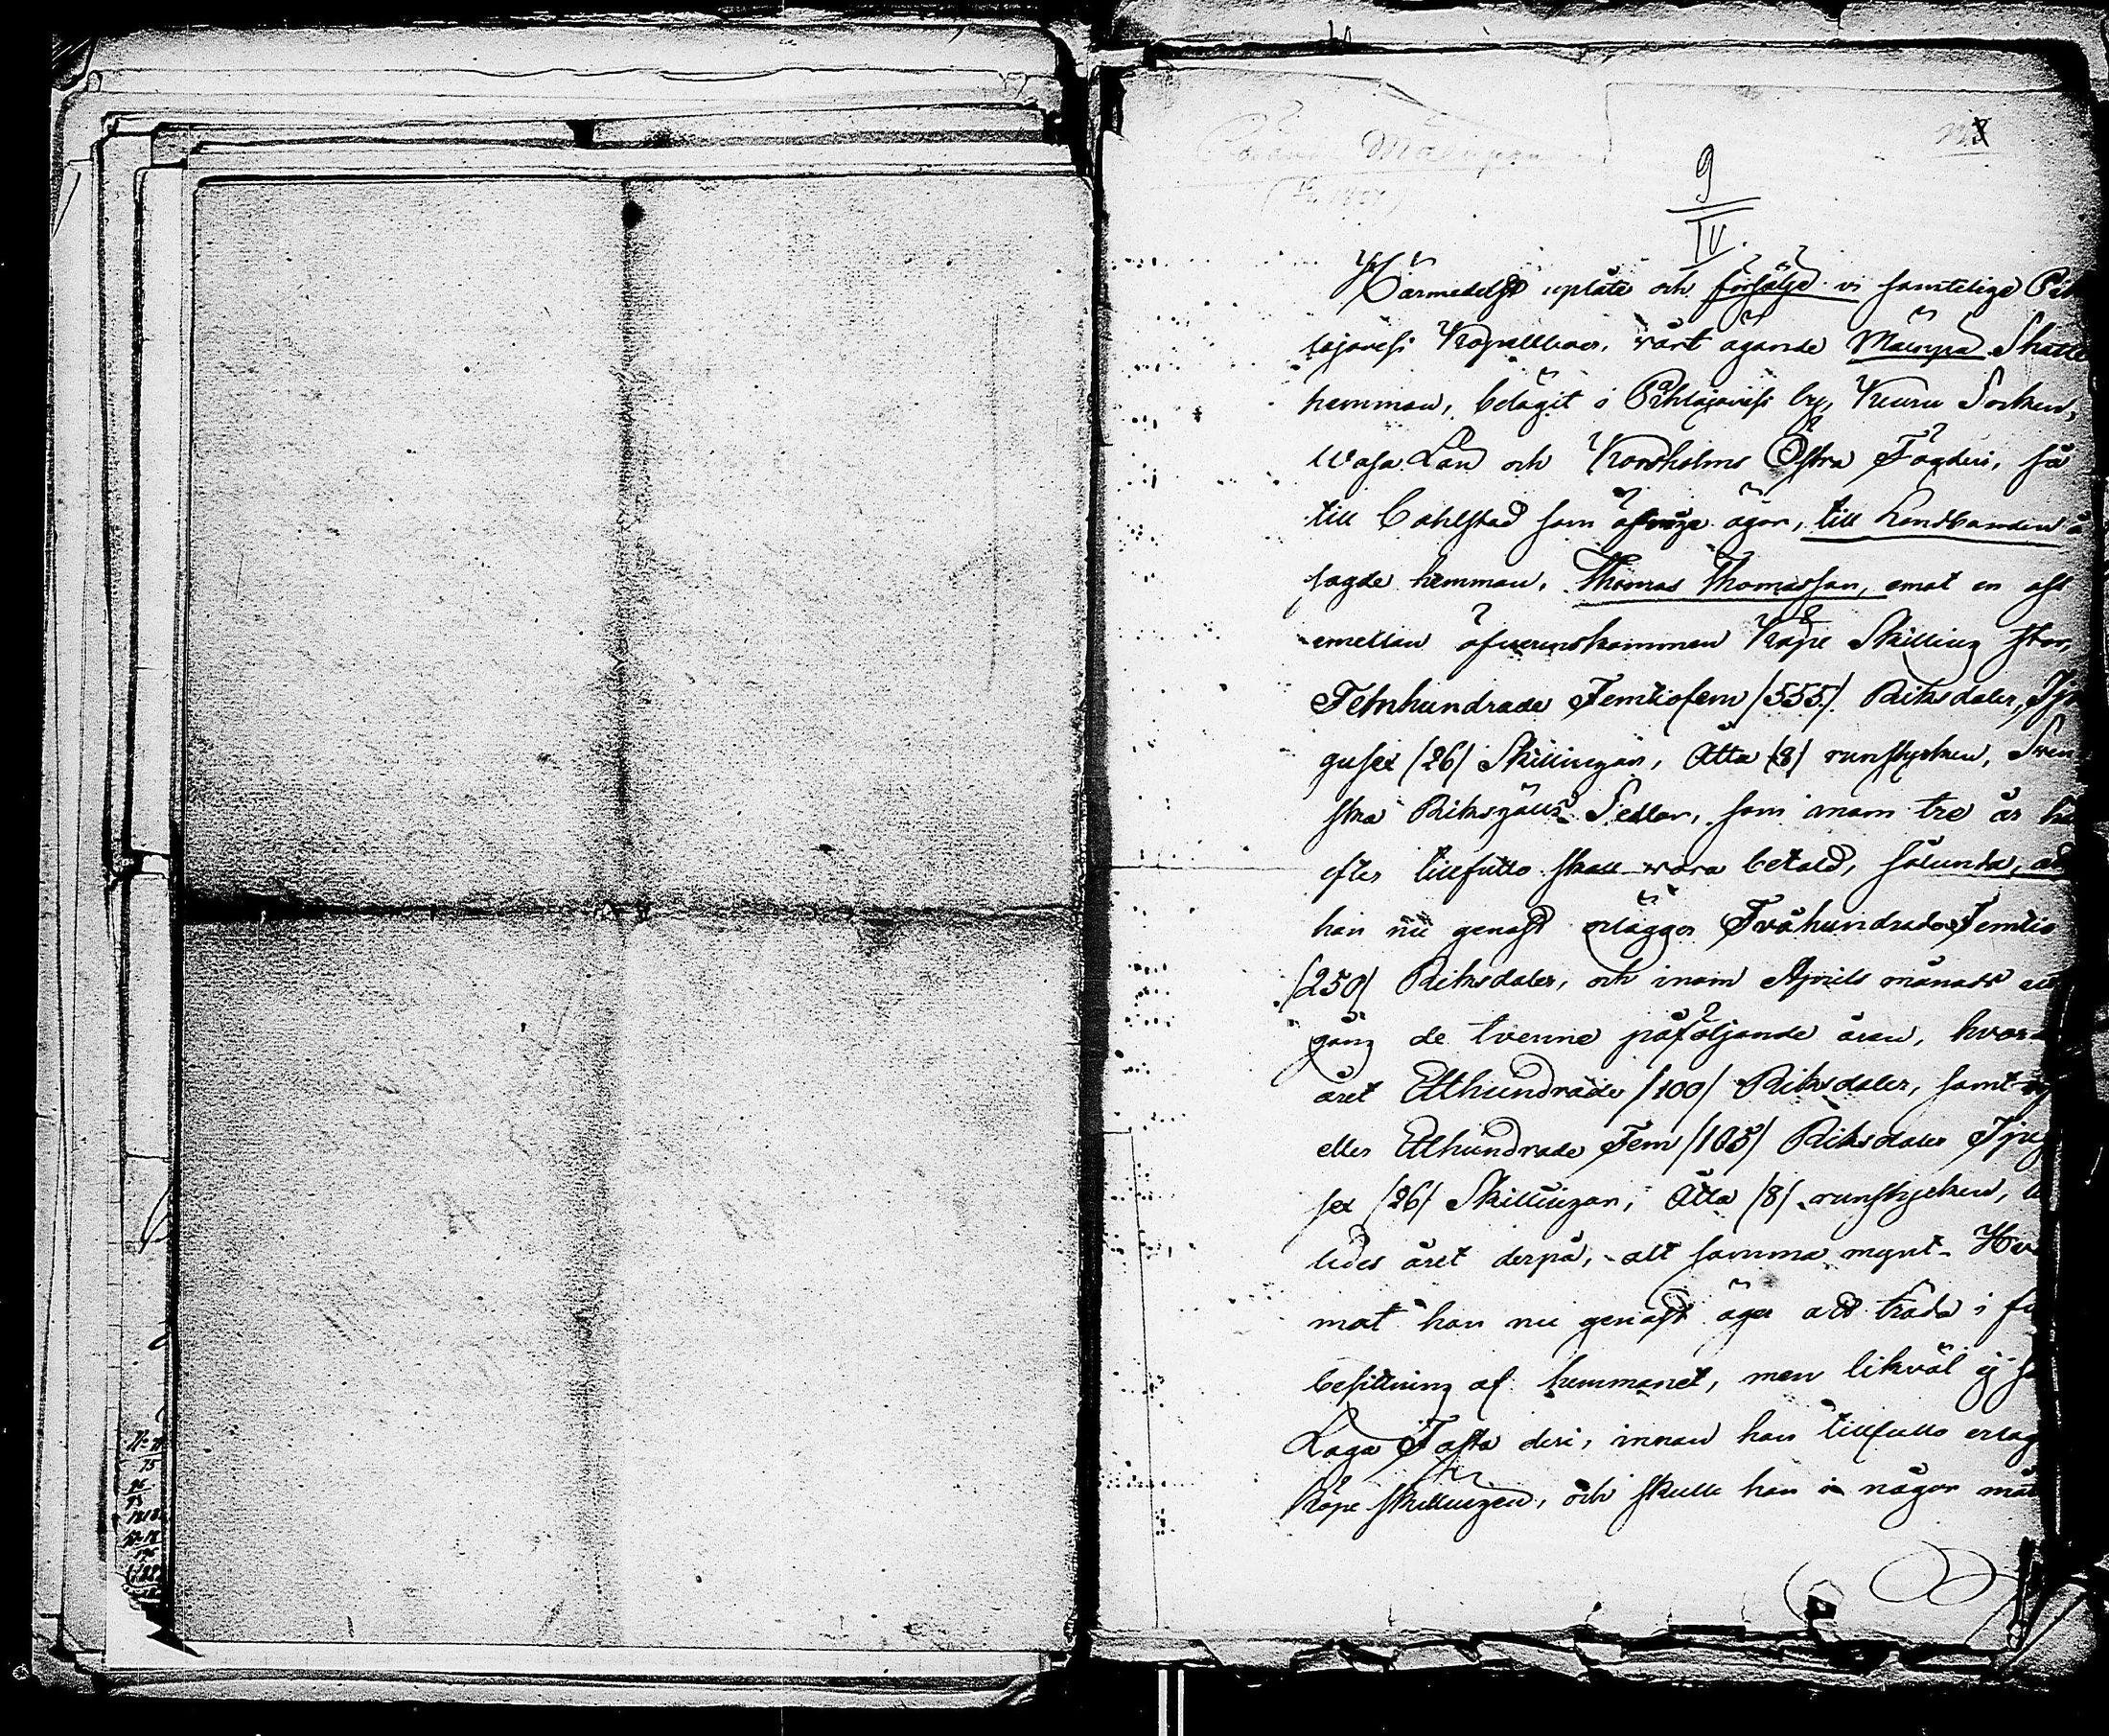 9
IV.
Härmedelst uplåte och försälje vi samtelige Pih
lajavesi Kapellboer, vårt ägande Mäenpää Skatte
hemman, belägit i Pihlajavesi by, Keuru Socken,
Wasa Län och Korsholms Östra Fögderi, så
till bohlstad som öfrige ägor, till Landbonden å
sagde hemman, Thomas Thomasson, emot en oss
emellan öfverenskommen Köpe Skilling stor,
Femhundrade Femtiofem /555/ Riksdaler, Tju
gusex /26/ Skillingar, Åtta /8/ runstycken, Sven
ska Riksgälds Sedlar, som inom tre år här
efter tillfullo skall vara betald, sålunda, att
han nu genast erlägger Tvåhundrade Femtio
/250/ Riksdaler, och inom Aprill månads ut
gång de tvenne påföljande åren, hvar
året Etthundrade /100/ Riksdaler, samt
eller Etthundrade Fem /105/ Riksdaler Tjug
sex /26/ Skillingar, Åtta /8/ runstycken,
ledes året derpå, alt samma mynt. Hva
mot han nu genast äger att träda i
besittning af hemmanet, men likväl ej
Laga Fasta deri, innan han tillfullo erlag
Köpe skillingen, och skulle han i någon